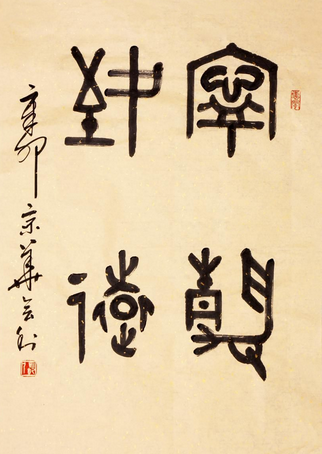 寧靜
致遠
辛卯京華